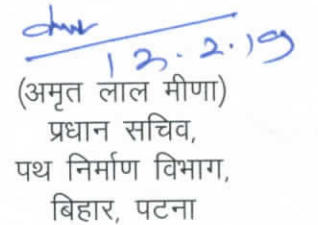 13.2.19
(अमृत लाल मीणा)
प्रधान सचिव,
पथ निर्माण विभाग,
बिहार, पटना